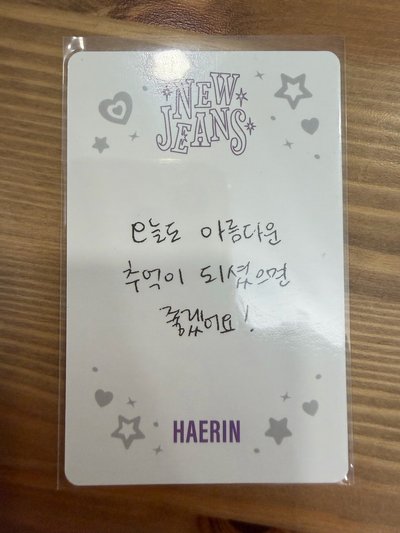 NEW
JEANS
오늘도 아름다운
추억이 되셨으면
좋겠어요!
HAERIN